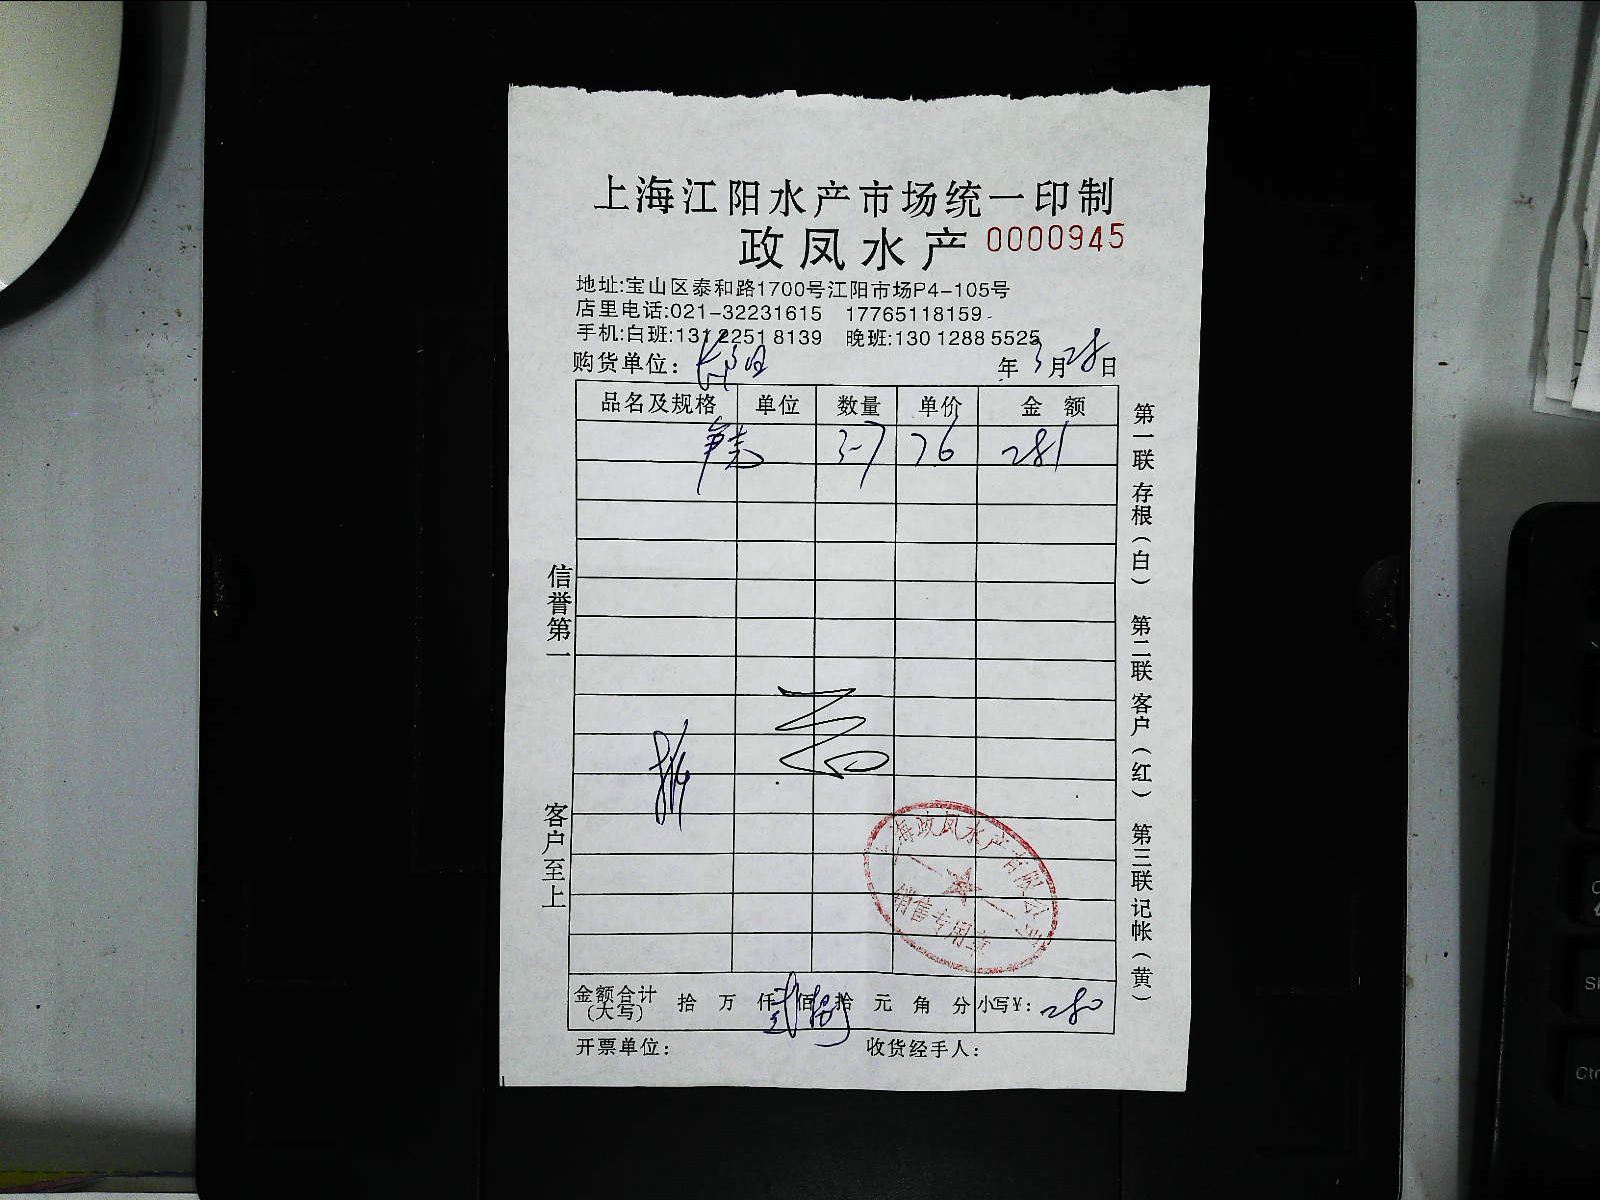 上海江阳水产市场统一印制
政凤水产 0000945
地址:宝山区泰和路1700号江阳市场P4-105号
店里电话:021-32231615 17765118159
手机:白班:131 2251 8139 晚班:130 1288 5525
购货单位: 年 3月28日
品名及规格 单位 数量 单价 金额
3-7 76 281
信誉第一
客户至上
第一联 存根(白) 第二联 客户(红) 第三联 记帐(黄)
上海政凤水产有限公司
销售专用章
金额合计(大写) 拾 万 仟 贰佰 捌拾 元 角 分 小写¥: 280
开票单位: 收货经手人: